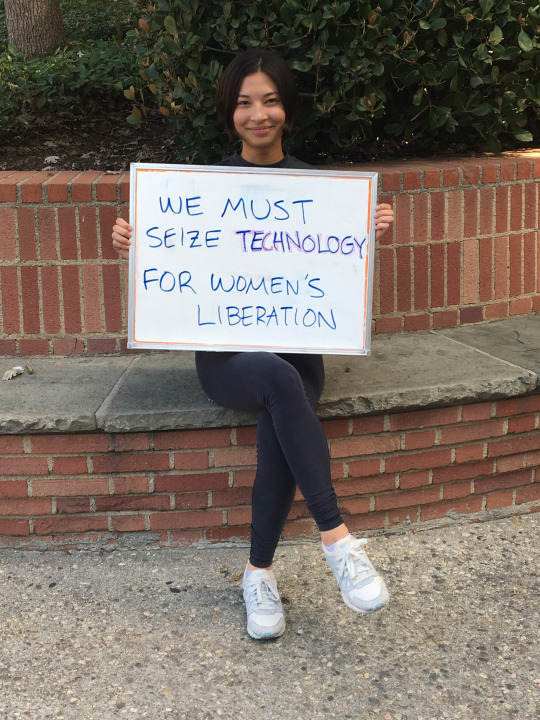 WE MUST
SEIZE TECHNOLOGY
FOR WOMEN'S
LIBERATION